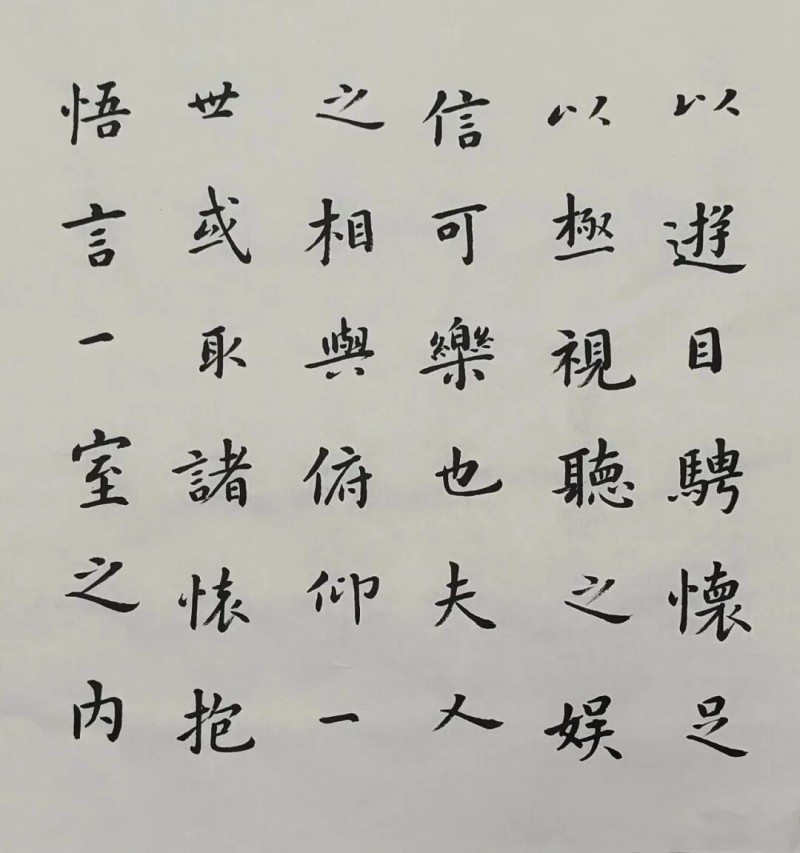 以遊目騁懷足
以極視聽之娱
信可樂也夫人
之相與俯仰一
世或取諸懐抱
悟言一室之内